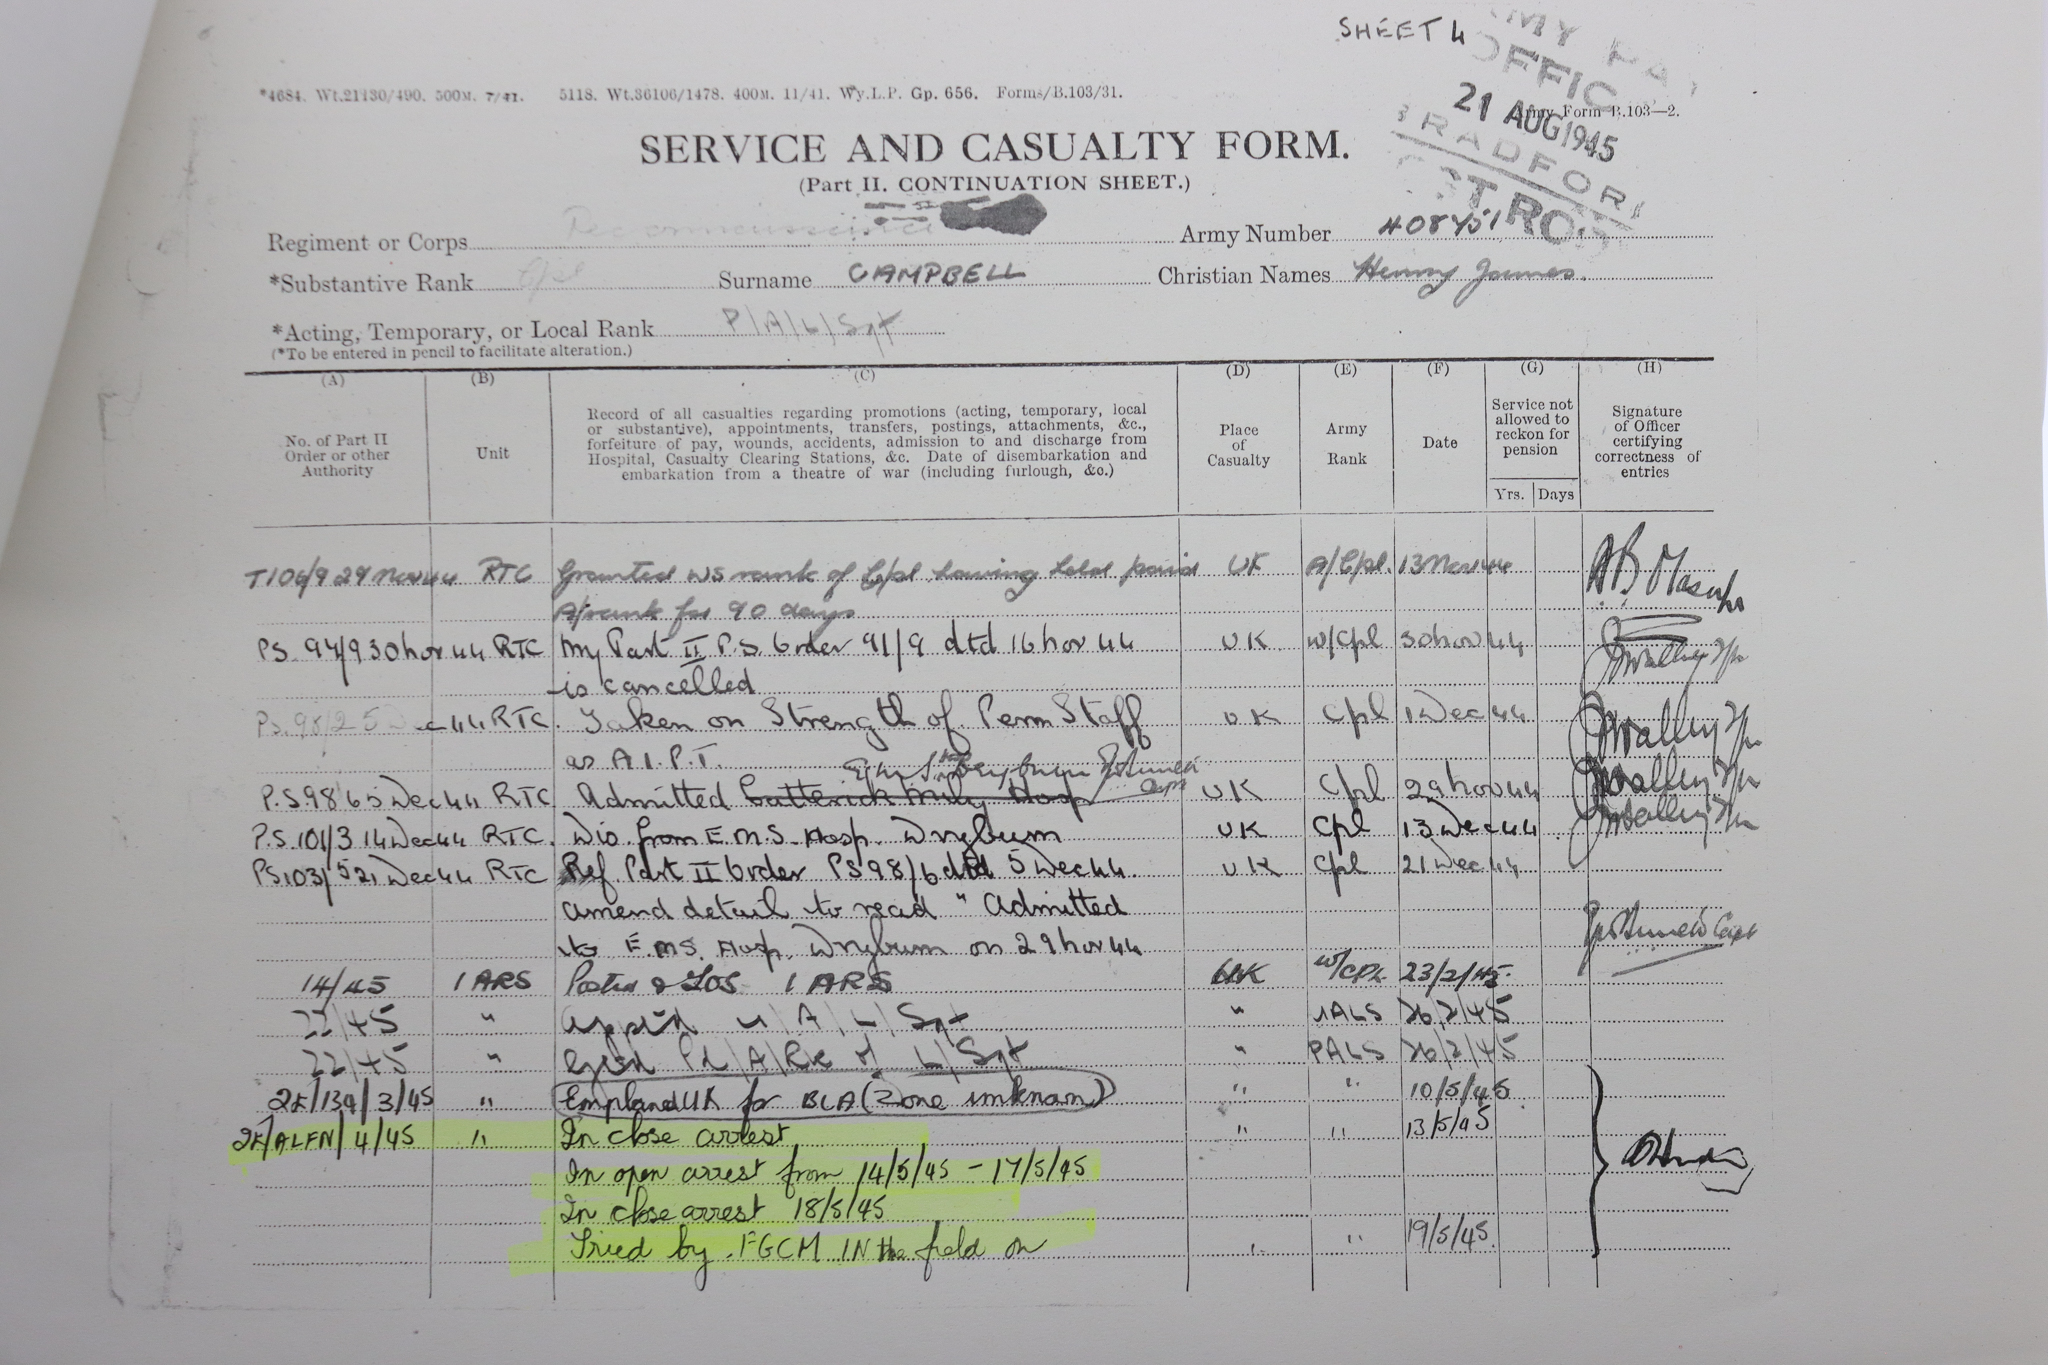 SHEET 4
ARMY PAY
OFFICE
21 AUG 1945
BRADFORD
*4684. Wt.21130/490. 500M. 7/41. 5118. Wt.36106/1478. 400M. 11/41. Wy.L.P. Gp. 656. Forms/B.103/31.
Army Form B.103—2.
SERVICE AND CASUALTY FORM.
(Part II. CONTINUATION SHEET.)
Regiment or Corps Reconnaissance Army Number
*Substantive Rank Cpl Surname CAMPBELL Christian Names Henry James.
*Acting, Temporary, or Local Rank P/A/L/Sgt
(*To be entered in pencil to facilitate alteration.)
(A) (B) (C) (D) (E) (F) (G) (H)
No. of Part II Order or other Authority
Unit
Record of all casualties regarding promotions (acting, temporary, local
or substantive), appointments, transfers, postings, attachments, &c.,
forfeiture of pay, wounds, accidents, admission to and discharge from
Hospital, Casualty Clearing Stations, &c. Date of disembarkation and
embarkation from a theatre of war (including furlough, &c.)
Place of Casualty
Army Rank
Date
Service not allowed to reckon for pension
Yrs. Days
Signature of Officer certifying correctness of entries
T106/9 29 Nov 44 RTC Granted WS rank of Cpl having held paid UK A/Cpl. 13 Nov 44
A/rank for 90 days
PS 97/9 30 Nov 44 RTC My Part II P.S. Order 91/9 dtd 16 Nov 44 UK W/Cpl 30 Nov 44
is cancelled
PS.98/2 5 Dec 44 RTC. Taken on Strength of Perm Staff UK Cpl 1 Dec 44
as A.I.P.T.
P.S.98/6 5 Dec 44 RTC Admitted Catterick Mily Hosp UK Cpl 29 Nov 44
P.S.101/3 14 Dec 44 RTC. Dis. from E.M.S. Hosp. Dryburn UK Cpl 13 Dec 44
PS103/5 21 Dec 44 RTC Ref Part II Order PS98/6 dtd 5 Dec 44. UK Cpl 21 Dec 44
amend detail to read "Admitted
to E.M.S. Hosp. Dryburn on 29 Nov 44
14/45 1 ARS Posted & TOS 1 ARS UK W/CPL 23/2/45.
22/45 " Appt'd U/A/L/Sgt " UALS 26/2/45
22/45 " Pd/A/Rk of L/Sgt " PALS 26/2/45
2E/139/3/45 " Emplaned UK for BLA (Zone unknown) " " 10/5/45
2E/ALFN/4/45 " In close arrest " " 13/5/45
In open arrest from 14/5/45 - 17/5/45
In close arrest 18/5/45
Tried by FGCM IN the field on " " 19/5/45.